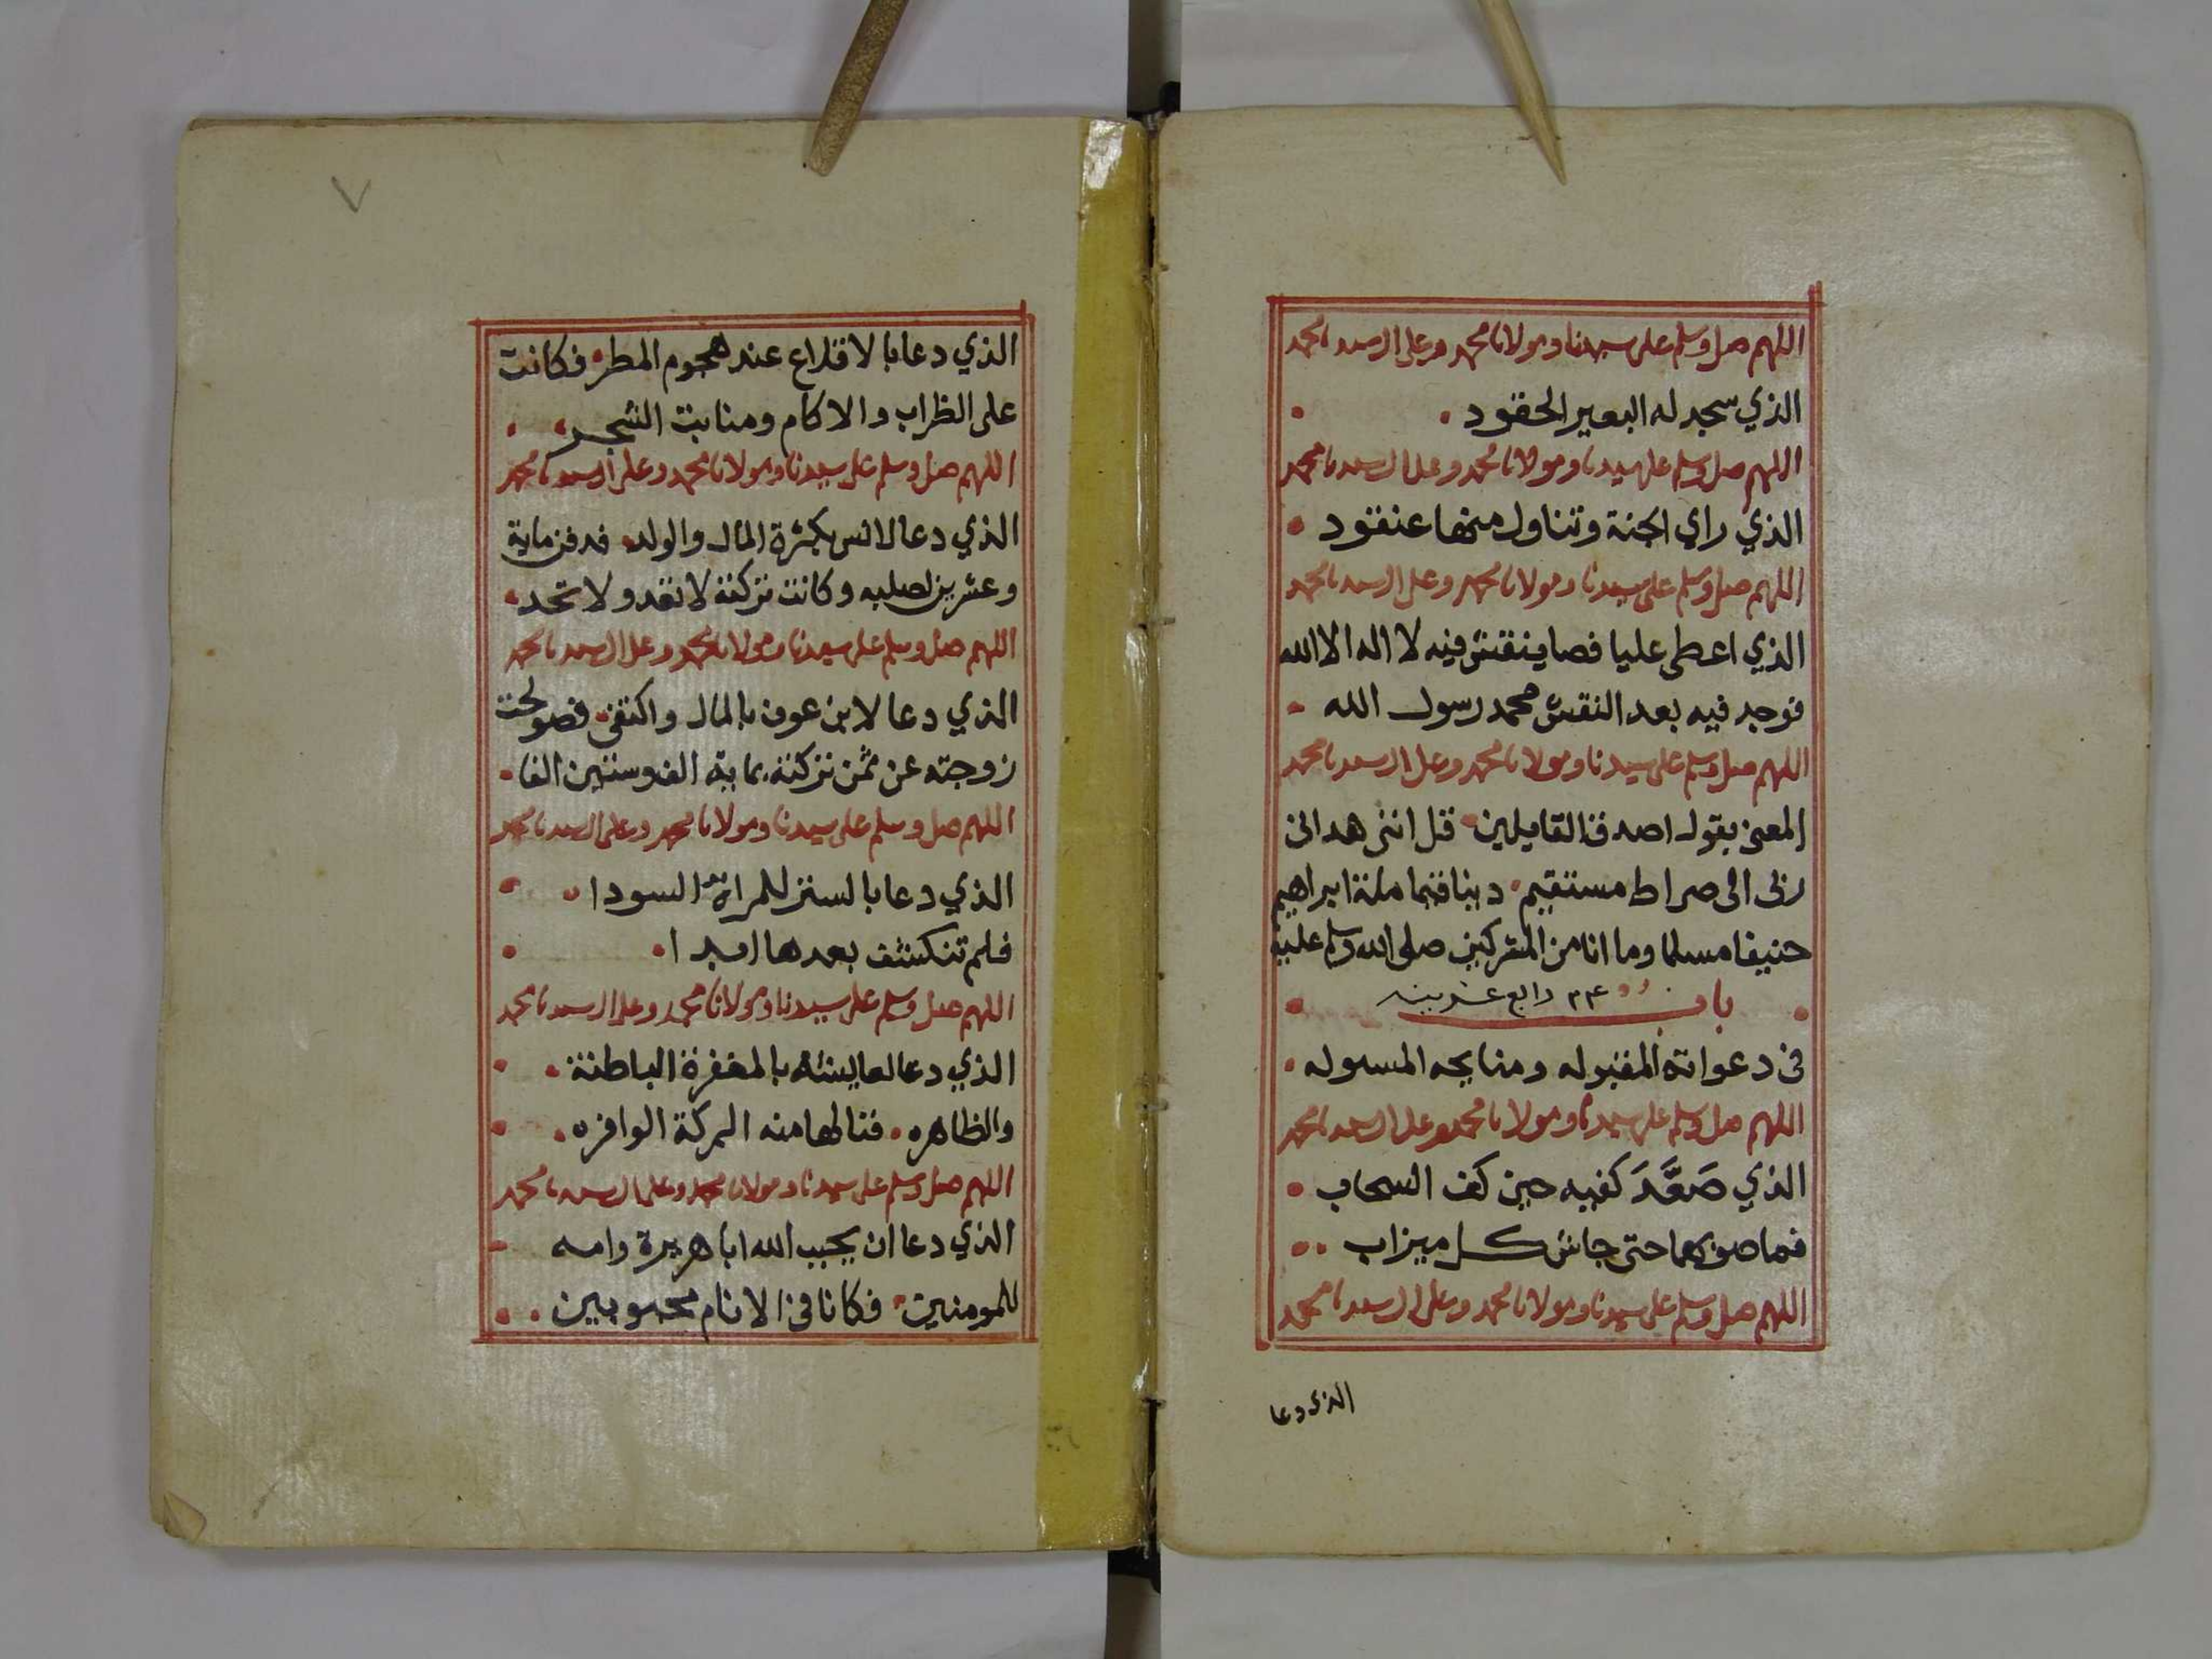 اللهم صل وسلم على سيدنا ومولانا محمد وعلى ال سيدنا محمد
الذي سجد له البعير الحقود
اللهم صل وسلم على سيدنا ومولانا محمد وعلى ال سيدنا محمد
الذي راي الجنة وتناول منها عنقود
اللهم صل وسلم على سيدنا ومولانا محمد وعلى ال سيدنا محمد
الذي اعطى عليا فصا ينقش فيه لا اله الا الله
فوجد فيه بعد النقش محمد رسول الله
اللهم صل وسلم على سيدنا ومولانا محمد وعلى ال سيدنا محمد
المعنى بقول اصدق القايلين قل انني هداني
ربي الى صراط مستقيم دينا قيما ملة ابراهيم
حنيفا مسلما وما انا من المشركين صلى الله وسلم عليه
باب ٢٤ رابع عشرينه
في دعواته المقبوله ومنايحه المسوله
اللهم صل وسلم على سيدنا ومولانا محمد وعلى ال سيدنا محمد
الذي صَعَّدَ كفيه حين كف السحاب
فما صوبهما حتى جاش كل ميزاب
اللهم صل وسلم على سيدنا ومولانا محمد وعلى ال سيدنا محمد
الذي دعا
٧
الذي دعا بالاقلاع عند هجوم المطر فكانت
على الظراب والاكام ومنابت الشجر
اللهم صل وسلم على سيدنا ومولانا محمد وعلى ال سيدنا محمد
الذي دعا لانس بكثرة المال والولد فدفن ماية
وعشرين لصلبه وكانت تركته لا تعد ولا تحد
اللهم صل وسلم على سيدنا ومولانا محمد وعلى ال سيدنا محمد
الذي دعا لابن عوف بالمال واكتفى فصولحت
زوجته عن ثمن تركته بماية الف وستين الفا
اللهم صل وسلم على سيدنا ومولانا محمد وعلى ال سيدنا محمد
الذي دعا بالستر للمراة السودا
فلم تنكشف بعدها ابدا
اللهم صل وسلم على سيدنا ومولانا محمد وعلى ال سيدنا محمد
الذي دعا لعايشة بالمغفرة الباطنة
والظاهره فنالها منه البركة الوافره
اللهم صل وسلم على سيدنا ومولانا محمد وعلى ال سيدنا محمد
الذي دعا ان يحبب الله ابا هريرة وامه
للمومنين فكانا في الانام محبوبين